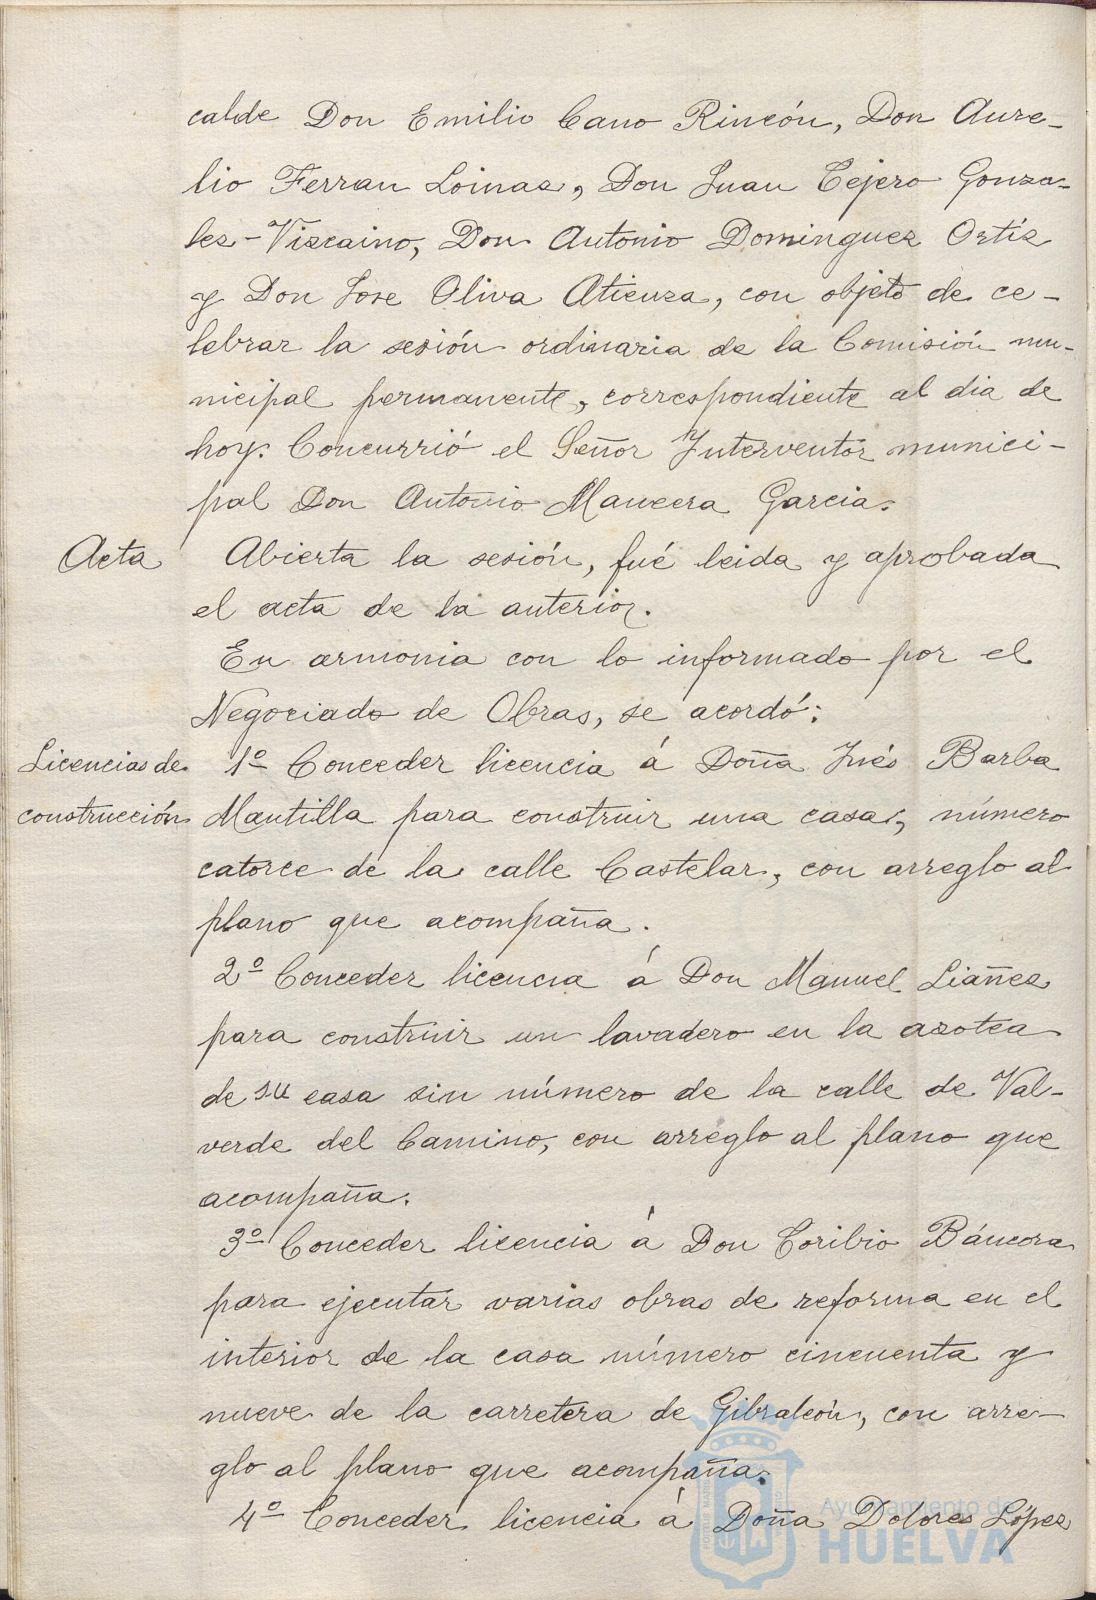 calde Don Emilio Cano Rincón, Don Aure-
lio Ferran Loinaz, Don Juan Tejero Gonza-
lez-Vizcaino, Don Antonio Dominguez Ortiz
y Don Jose Oliva Atienza, con objeto de ce-
lebrar la sesión ordinaria de la Comisión mu-
nicipal permanente, correspondiente al dia de
hoy. Concurrió el Señor Interventor munici-
pal Don Antonio Mancera Garcia.
Acta Abierta la sesión, fué leida y aprobada
el acta de la anterior.
En armonia con lo informado por el
Negociado de Obras, se acordó:
Licencias de 1º Conceder licencia á Doña Inés Barba
construcción Mantilla para construir una casa, número
catorce de la calle Castelar, con arreglo al
plano que acompaña.
2º Conceder licencia á Don Manuel Liáñez
para construir un lavadero en la azotea
de su casa sin número de la calle de Val-
verde del Camino, con arreglo al plano que
acompaña.
3º Conceder licencia á Don Toribio Báncora
para ejecutar varias obras de reforma en el
interior de la casa número cincuenta y
nueve de la carretera de Gibraleón, con arre-
glo al plano que acompaña.
4º Conceder licencia á Doña Dolores López
Ayuntamiento de
HUELVA